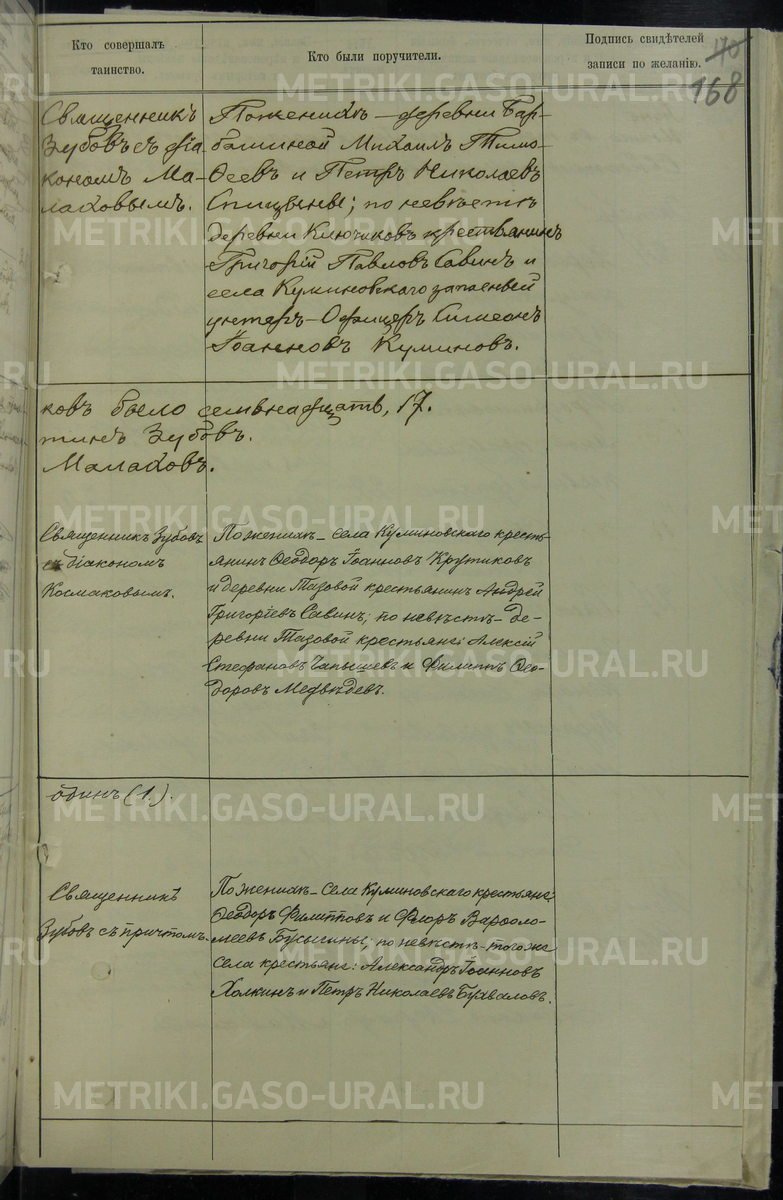 Кто совершалъ
таинство.
Кто были поручители.
Подпись свидѣтелей
записи по желанію.
168
Священникъ
Зубовъ съ діа-
кономъ Ма-
лаховымъ.
По женихѣ — деревни Бар-
башиной Михаилъ Тимо-
ѳеевъ и Петръ Николаевъ
Спицыны; по невѣстѣ
деревни Ключиковъ крестьянинъ
Григорій Павловъ Савинъ и
села Куминовскаго запасный
унтеръ-Офицеръ Симеонъ
Іоанновъ Куминовъ.
ковъ было семьнадцать, 17.
тинъ Зубовъ.
Малаховъ.
Священникъ Зубовъ
съ діакономъ
Космаковымъ.
По женихѣ — села Куминовскаго кресть-
янинъ Ѳеодоръ Іоанновъ Крутиковъ
и деревни Тазовой крестьянинъ Андрей
Григоріевъ Савинъ; по невѣстѣ — де-
ревни Тазовой крестьяне: Алексій
Стефановъ Чапышевъ и Филиппъ Ѳео-
доровъ Медвѣдевъ.
одинъ (1.).
Священникъ
Зубовъ съ причтомъ.
По женихѣ — Села Куминовскаго крестьяне:
Ѳеодоръ Филипповъ и Флоръ Варѳоло-
меевъ Бусыгины; по невѣстѣ — того же
села крестьяне: Александръ Іоанновъ
Холкинъ и Петръ Николаевъ Бухваловъ.
METRIKI.GASO-URAL.RU
METRIKI.GASO-URAL.RU
METRIKI.GASO-URAL.RU
METRIKI.GASO-URAL.RU
METRIKI.GASO-URAL.RU
METRIKI.GASO-URAL.RU
METRIKI.GASO-URAL.RU
METRIKI.GASO-URAL.RU